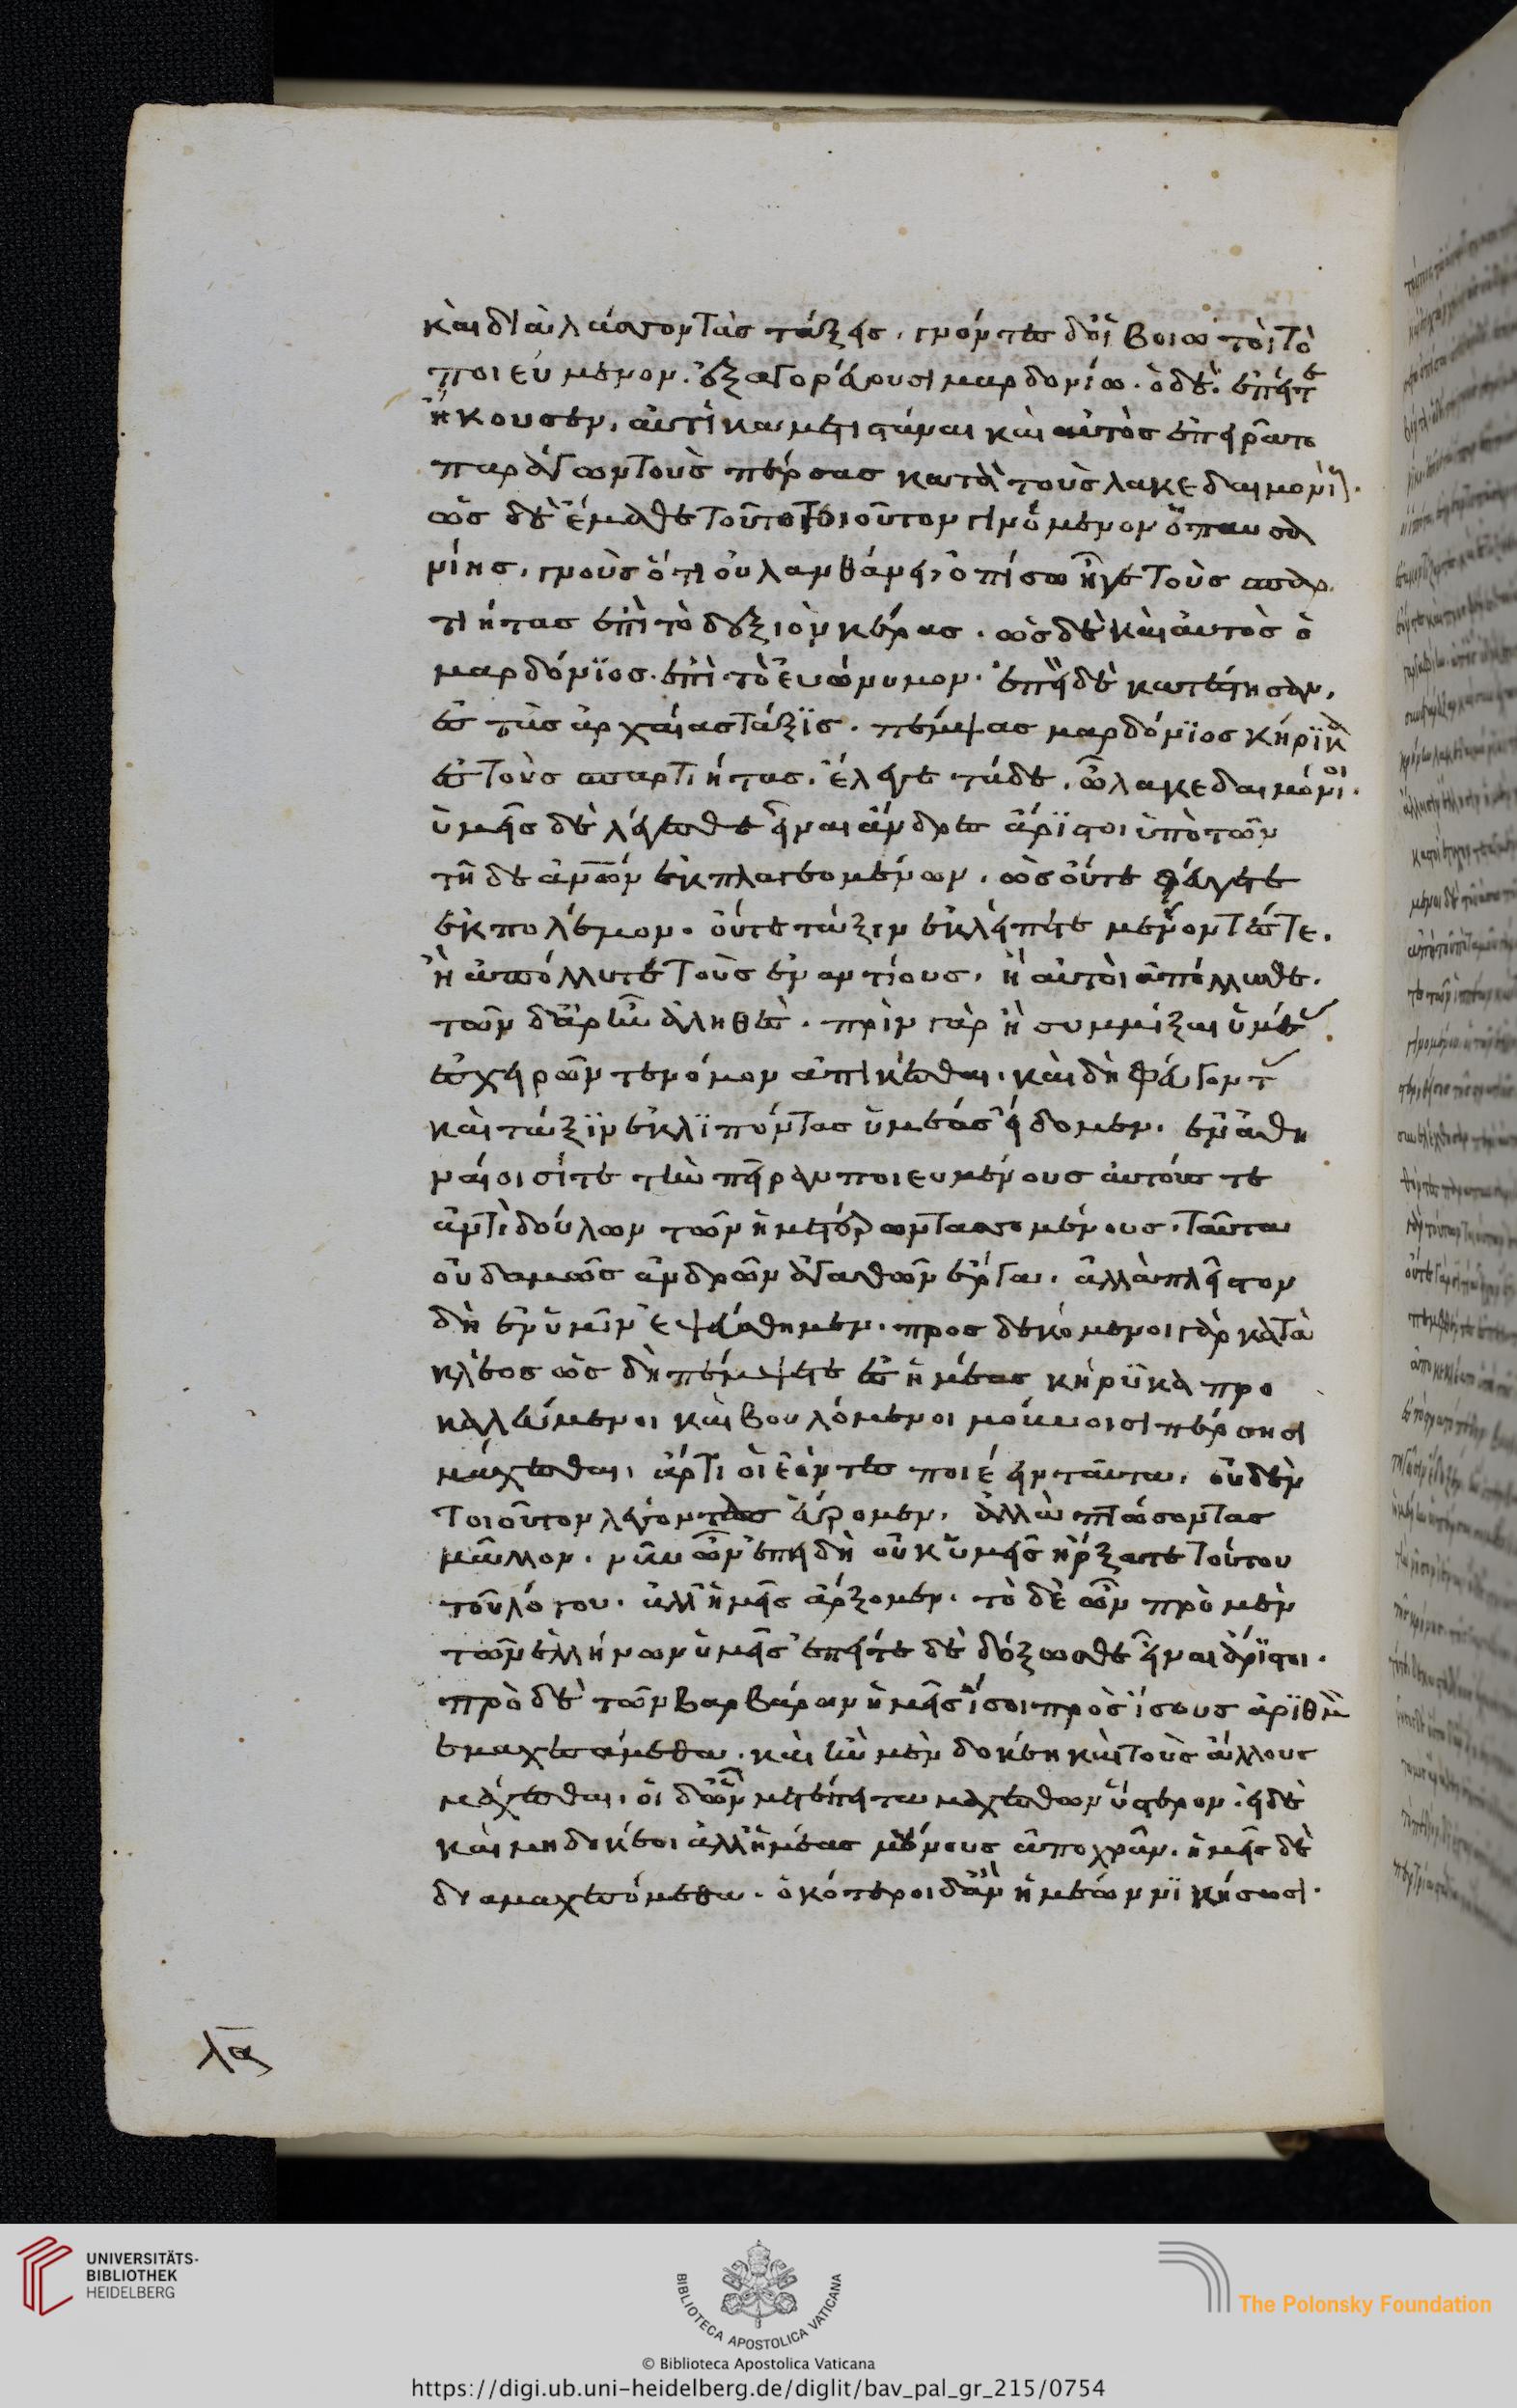 καὶ διαλάσσον τὰς τάξεις. γνόντες δ' οἱ βοιωτοὶ τὸ
ποιεύμενον. ἐξαγορεύουσι μαρδονίω. ὁ δ' ἐπείτε
ἤκουσεν, αὐτίκα μετιστάναι καὶ αὐτὸς ἐπειρᾶτο
παράγων τοὺς πέρσας κατὰ τοὺς λακεδαιμονί.
ὡς δὲ ἔμαθε τοῦτο τοιοῦτον γινόμενον ὁ παυσα
νίης, γνοὺς ὅτι οὐ λανθάνει, ὀπίσω ἦγε τοὺς σπαρ
τιήτας ἐπὶ τὸ δεξιὸν κέρας. ὡς δὲ καὶ αὐτὸς ὁ
μαρδόνϊος. ἐπὶ τὸ εὐώνυμον. ἐπεὶ δὲ κατέστησαν,
ἐς τὰς ἀρχαίας τάξϊς. πέμψας μαρδόνϊος κήρϊκα
ἐς τοὺς σπαρτιήτας. ἔλεγε τάδε. ὦ λακεδαιμόνιοι.
ὑμεῖς δὲ λέγεσθε εἶναι ἄνδρες ἄρϊστοι ὑπὸ τῶν
τῆδε ἀνων ἐκπλαγεομένων. ὡς οὔτε φεύγετε
ἐκ πολέμου. οὔτε τάξιν ἐκλείπετε μένοντές τε.
ἢ ἀπόλλυτε τοὺς ἐναντίους. ἢ αὐτοὶ ἀπόλλυσθε.
τῶν δ' ἄρ' ἦν ἀληθές. πρὶν γὰρ ἢ συμμίξαι ὑμέας
ἐς χειρῶν τε νόμον ἀπικέσθαι. καὶ δὴ φεύγοντ
καὶ τάξϊν ἐκλϊπόντας ὑμέας εἴδομεν. ἐν ἀθη
ναίοισί τε τὴν πεῖραν ποιευμένους αὐτούς τε
ἀντὶ δούλων τῶν ἡμετέρων τασσομένους. ταῦτα
οὐδαμῶς ἀνδρῶν ἀγαθῶν ἔργα. ἀλλὰ πλεῖστον
δὴ ἐν ὑμῖν ἐψεύσθημεν. προσδεκόμενοι γὰρ κατὰ
κλέος ὡς δὴ πέμψετε ἐς ἡμέας κήρϋκα προ
καλεύμενοι καὶ βουλόμενοι μούνοισι πέρσησι
μάχεσθαι. ἄρτι οἱ ἐόντες ποιέειν ταῦτα, οὐδὲν
τοιοῦτον λέγοντας εὕρομεν. ἀλλὰ πτώσοντας
μᾶλλον. νῦν ὦν ἐπειδὴ οὐκ ὑμεῖς ἤρξατε τούτου
τοῦ λόγου. ἀλλ' ἡμεῖς ἄρξομεν. τὸ δὲ ὦν πρὸ μὲν
τῶν ἑλλήνων ὑμεῖς ἐπείτε δὲ δόξωσθε εἶναι ἄρϊστοι.
πρὸ δὲ τῶν βαρβάρων ἡμεῖς ἴσοι πρὸς ἴσους ἀρϊθμὸν
ἐμαχεσάμεθα. καὶ ἢν μὲν δοκέη καὶ τοὺς ἄλλους
μάχεσθαι, οἱ δ' ὦν μετέπειτα μαχέσθων ὕστερον. εἰ δὲ
καὶ μὴ δοκέοι ἀλλ' ἡμέας μούνους ἀποχρᾶν. ἡμεῖς δὲ
διαμαχεσόμεθα. ὁκότεροι δ' ἂν ἡμέων νϊκήσωσι.
λα
UNIVERSITÄTS-
BIBLIOTHEK
HEIDELBERG
BIBLIOTECA APOSTOLICA VATICANA
The Polonsky Foundation
© Biblioteca Apostolica Vaticana
https://digi.ub.uni-heidelberg.de/diglit/bav_pal_gr_215/0754